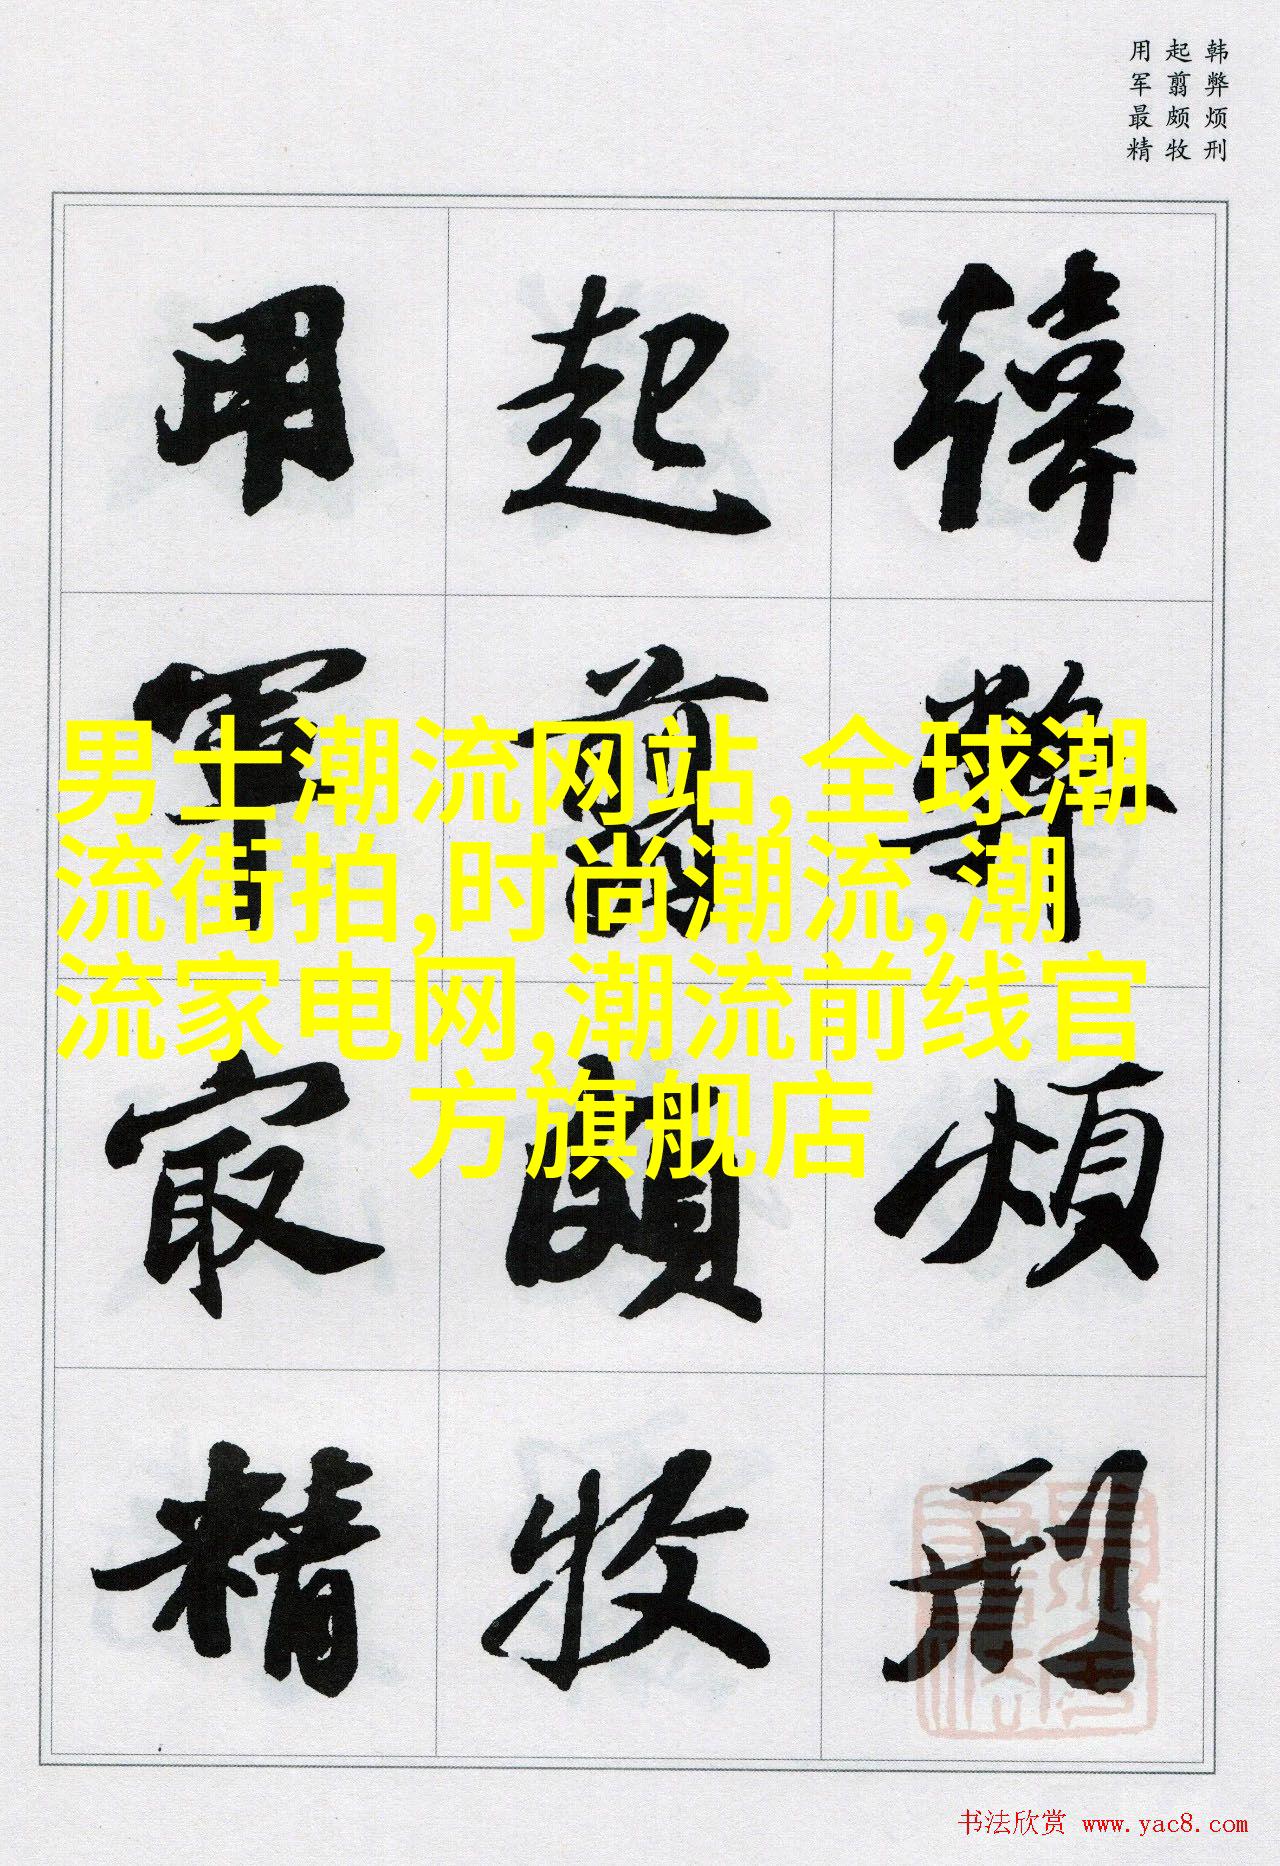 韩弊烦刑
起翦颇牧
用军最精
韩弊烦刑
起翦颇牧
用军最精
男士潮流网站,全球潮
流街拍,时尚潮流,潮
流家电网,潮流前线官
方旗舰店
书法欣赏 www.yac8.com